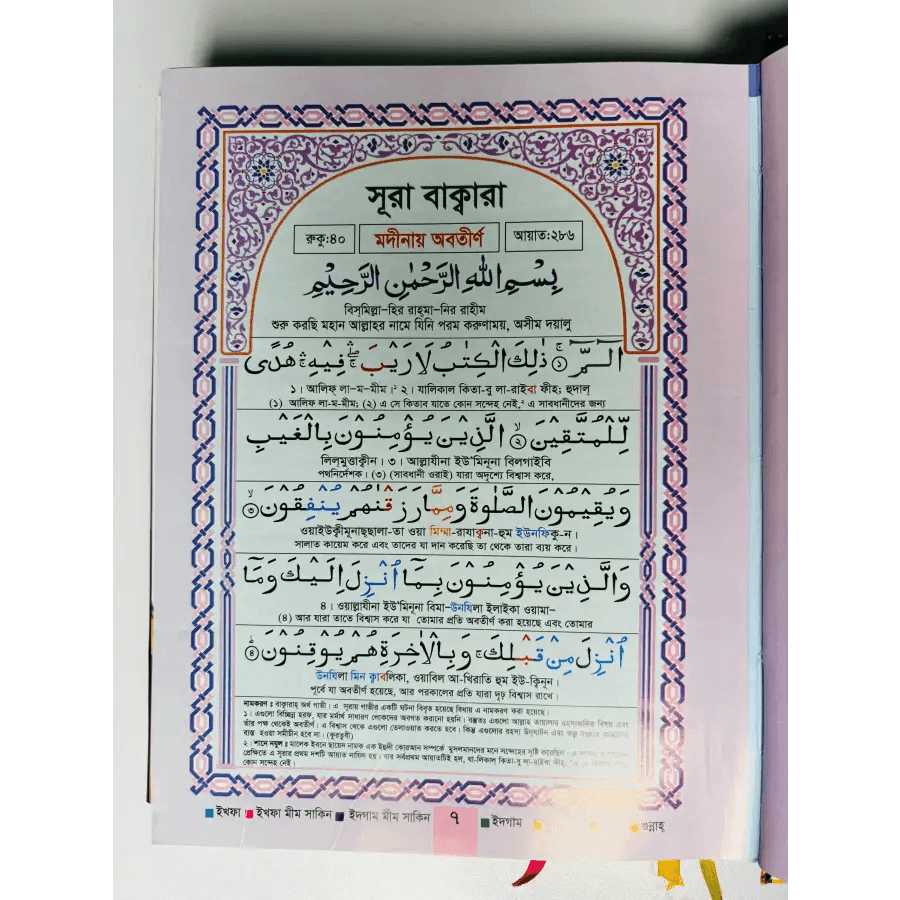 সূরা বাক্বারা
রুকু:৪০ মদীনায় অবতীর্ণ আয়াত:২৮৬
بِسْمِ اللهِ الرَّحْمٰنِ الرَّحِيْمِ
বিস্‌মিল্লা-হির রাহ্‌মা-নির রাহীম
শুরু করছি মহান আল্লাহর নামে যিনি পরম করুণাময়, অসীম দয়ালু
الٓمّٓ ۚ﴿١﴾ ذٰلِكَ الْكِتٰبُ لَا رَيْبَ ۛۖۚ فِيْهِ ۛۚ هُدًى
১। আলিফ্‌ লা-ম-মীম।১ ২। যালিকাল কিতা-বু লা-রাইবা ফীহ্‌; হুদাল্‌
(১) আলিফ লা-ম-মীম; (২) এ সে কিতাব যাতে কোন সন্দেহ নেই,২ এ সাবধানীদের জন্য
لِّلْمُتَّقِيْنَ ۙ﴿٢﴾ الَّذِيْنَ يُؤْمِنُوْنَ بِالْغَيْبِ
লিল্‌মুত্তাক্বীন। ৩। আল্লাযীনা ইউ'মিনূনা বিলগাইবি
পথনির্দেশক। (৩) (সাবধানী ওরাই) যারা অদৃশ্যে বিশ্বাস করে,
وَيُقِيْمُوْنَ الصَّلٰوةَ وَمِمَّا رَزَقْنٰهُمْ يُنْفِقُوْنَ ۙ﴿٣﴾
ওয়াইউক্বীমূনাছ্‌ছালা-তা ওয়া মিম্মা-রাযাক্বনা-হুম ইউনফিকু-ন।
সালাত কায়েম করে এবং তাদের যা দান করেছি তা থেকে তারা ব্যয় করে।
وَالَّذِيْنَ يُؤْمِنُوْنَ بِمَآ اُنْزِلَ اِلَيْكَ وَمَآ
৪। ওয়াল্লাযীনা ইউ'মিনূনা বিমা-উনযিলা ইলাইকা ওয়ামা-
(৪) আর যারা তাতে বিশ্বাস করে যা তোমার প্রতি অবতীর্ণ করা হয়েছে এবং তোমার
اُنْزِلَ مِنْ قَبْلِكَ ۚ وَبِالْاٰخِرَةِ هُمْ يُوْقِنُوْنَ ؕ﴿٤﴾
উনযিলা মিন ক্বাবলিকা, ওয়াবিল আ-খিরাতি হুম ইউ-ক্বিনূন।
পূর্বে যা অবতীর্ণ হয়েছে, আর পরকালের প্রতি যারা দৃঢ় বিশ্বাস রাখে।
নামকরণ : বাক্বারাহ্‌ অর্থ গাভী। এ সূরায় গাভীর একটি ঘটনা বিবৃত হয়েছে বিধায় এ নামকরণ করা হয়েছে।
১। এগুলো বিচ্ছিন্ন হরফ, যার মর্মার্থ সাধারণ লোকদের অবগত করানো হয়নি। বস্তুতঃ এগুলো আল্লাহ তায়ালার রহস্যজনিত বিষয় এবং
তাঁর পক্ষ থেকেই অবতীর্ণ। এ বিশ্বাস থেকে এগুলো তেলাওয়াত করতে হবে। কিন্তু এগুলোর রহস্য উদ্‌ঘাটন এবং তত্ত্ব
ব্যস্ত হওয়া সমীচীন হবে না। (কুরতুবী)
২। শানে নযুল : মালেক ইবনে ছায়েদ নামক এক ইহুদী কোরআন সম্পর্কে মুসলমানদের মনে সন্দেহের সৃষ্টি করেছিল।
প্রেক্ষিতে এ সূরার প্রথম দশটি আয়াত নাযিল হয়। যার সর্বপ্রথম আয়াতটিই হল, যা-লিকাল্‌ কিতা-বু লা-রাইবা ফীহ্‌;
কোন সন্দেহ নেই।
ইখফা ইখফা মীম সাকিন ইদগাম মীম সাকিন ৭ ইদগাম গুন্নাহ্‌